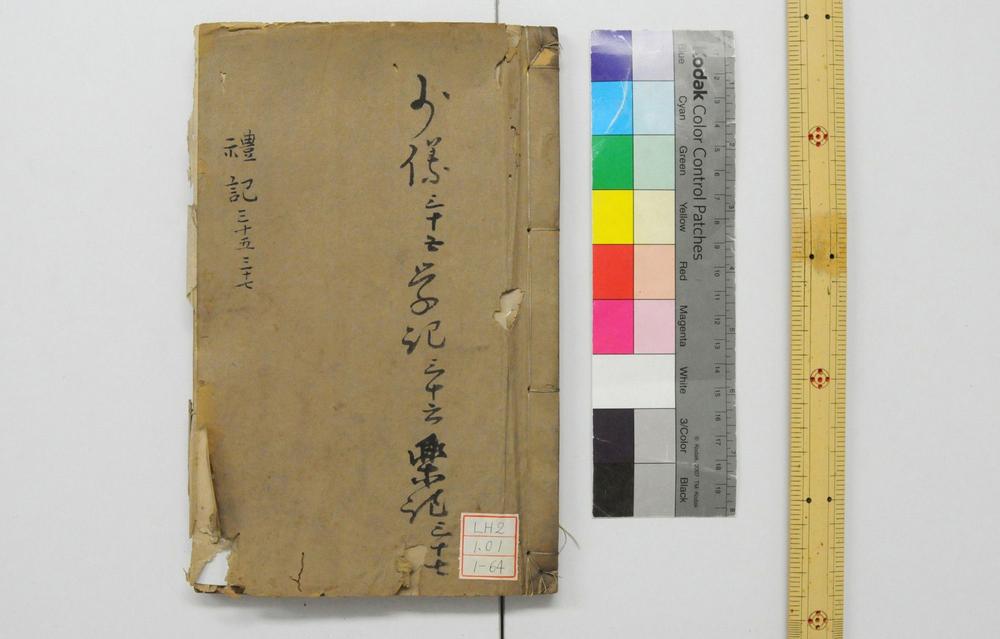 少儀三十五学記三十六樂記三十七
禮記三十五三十七
LH2
1.01
1-64
Kodak Color Control Patches
Blue
Cyan
Green
Yellow
Red
Magenta
White
3/Color
Black
© Kodak, 2007 TM: Kodak